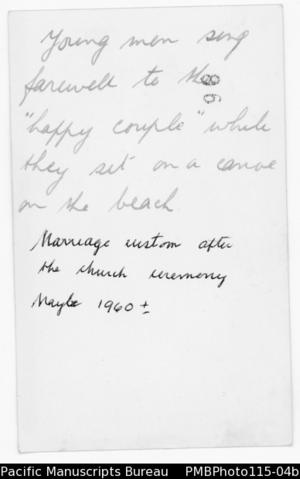 Young men sing
farewell to the
98
"happy couple" while
they sit on a canoe
on the beach
Marriage custom after
the church ceremony
Maybe 1960 ±
Pacific Manuscripts Bureau PMBPhoto115-04b